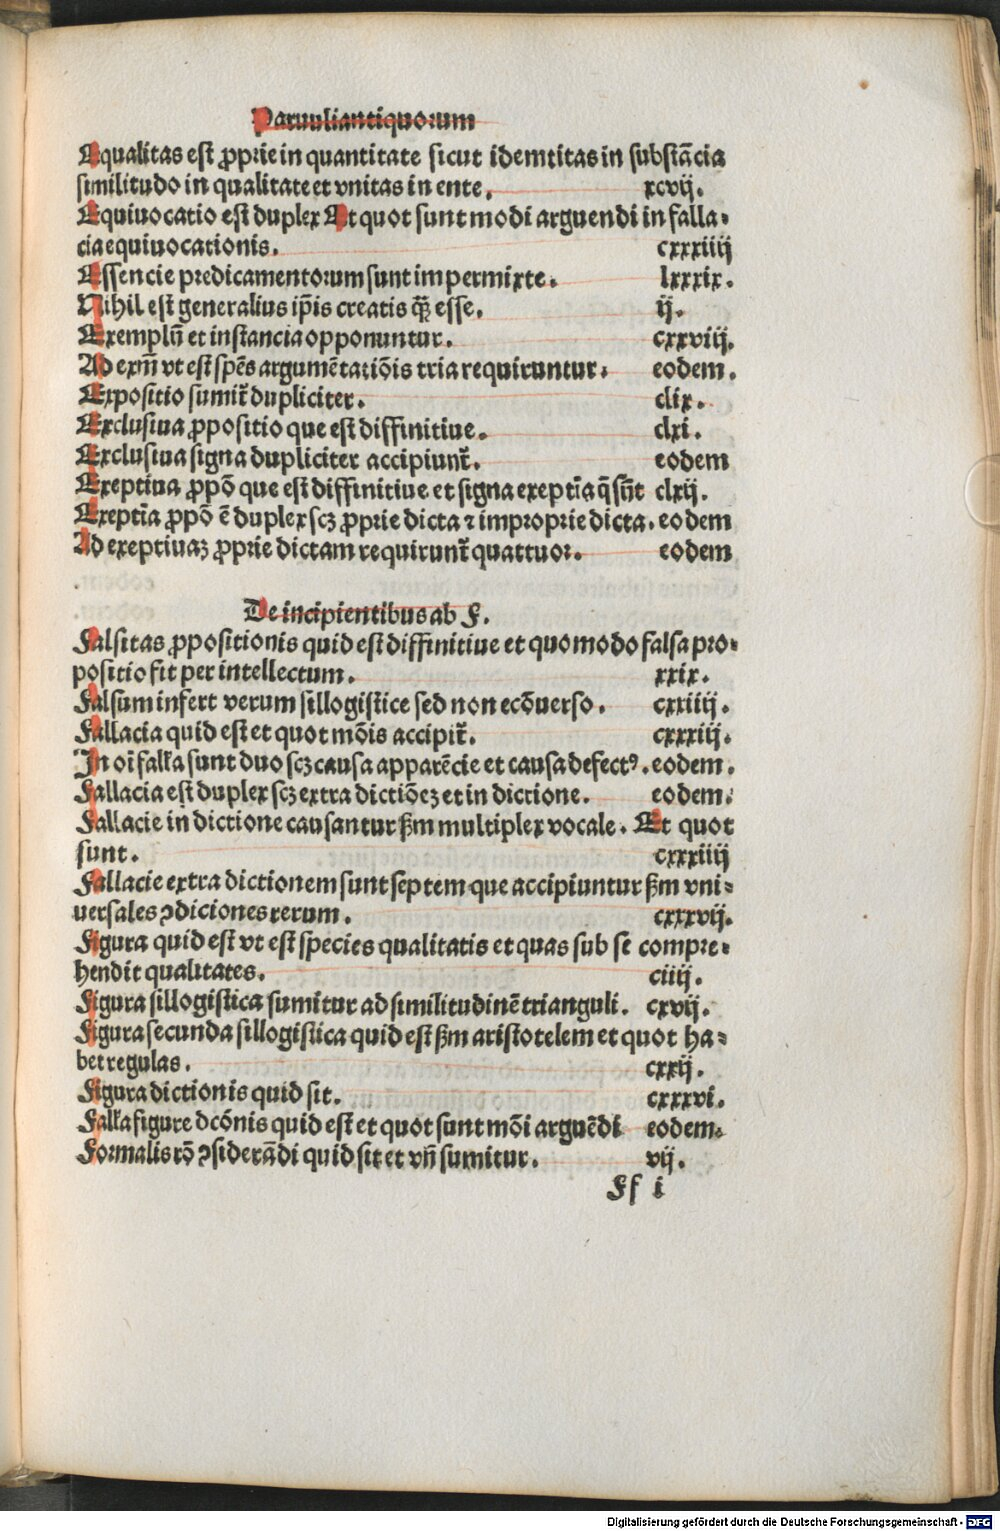 Paruuli antiquorum
Equalitas est ꝓprie in quantitate sicut idemtitas in substācia
similitudo in qualitate et vnitas in ente. xcvij.
Equiuocatio est duplex Et quot sunt modi arguendi in falla-
cia equiuocationis. cxxxiiij
Essencie predicamentorum sunt impermixte. lxxxix.
Nihil est generalius ip̄is creatis q̄ꝫ esse. ij.
Exemplū et instancia opponuntur. cxxviij.
Ad exm̄ vt est spēs argumētatiōis tria requiruntur. eodem.
Expositio sumit̄ dupliciter. clix.
Exclusiua ꝓpositio que est diffinitiue. clxi.
Exclusiua signa dupliciter accipiunt̄. eodem
Exeptiua ꝓpō que est diffinitiue et signa exeptīa q̄ sūt clxij.
Exeptīa ꝓpō ē duplex scꝫ ꝓprie dicta ⁊ improprie dicta. eodem
Ad exeptiuaꝫ ꝓprie dictam requirunt̄ quattuor. eodem
De incipientibus ab F.
Falsitas ꝓpositionis quid est diffinitiue et quomodo falsa pro-
positio fit per intellectum. xxix.
Falsum infert verum sillogistice sed non ecōuerso. cxxiiij.
Fallacia quid est et quot mōis accipit̄. cxxxiij.
In oī falł̄a sunt duo scꝫ causa apparēcie et causa defectꝰ. eodem.
Fallacia est duplex scꝫ extra dictiōeꝫ et in dictione. eodem.
Fallacie in dictione causantur ẜm multiplex vocale. Et quot
sunt. cxxxiiij
Fallacie extra dictionem sunt septem que accipiuntur ẜm vni-
uersales ꝯdiciones rerum. cxxxvij.
Figura quid est vt est species qualitatis et quas sub se compre-
hendit qualitates. ciiij.
Figura sillogistica sumitur ad similitudinē trianguli. cxvij.
Figura secunda sillogistica quid est ẜm aristotelem et quot ha-
bet regulas. cxxij.
Figura dictionis quid sit. cxxxvi.
Falł̄a figure dcōnis quid est et quot sunt mōi arguēdi eodem.
Formalis rō ꝯsiderādi quid sit et vn̄ sumitur. vij.
Ff i
Digitalisierung gefördert durch die Deutsche Forschungsgemeinschaft - DFG